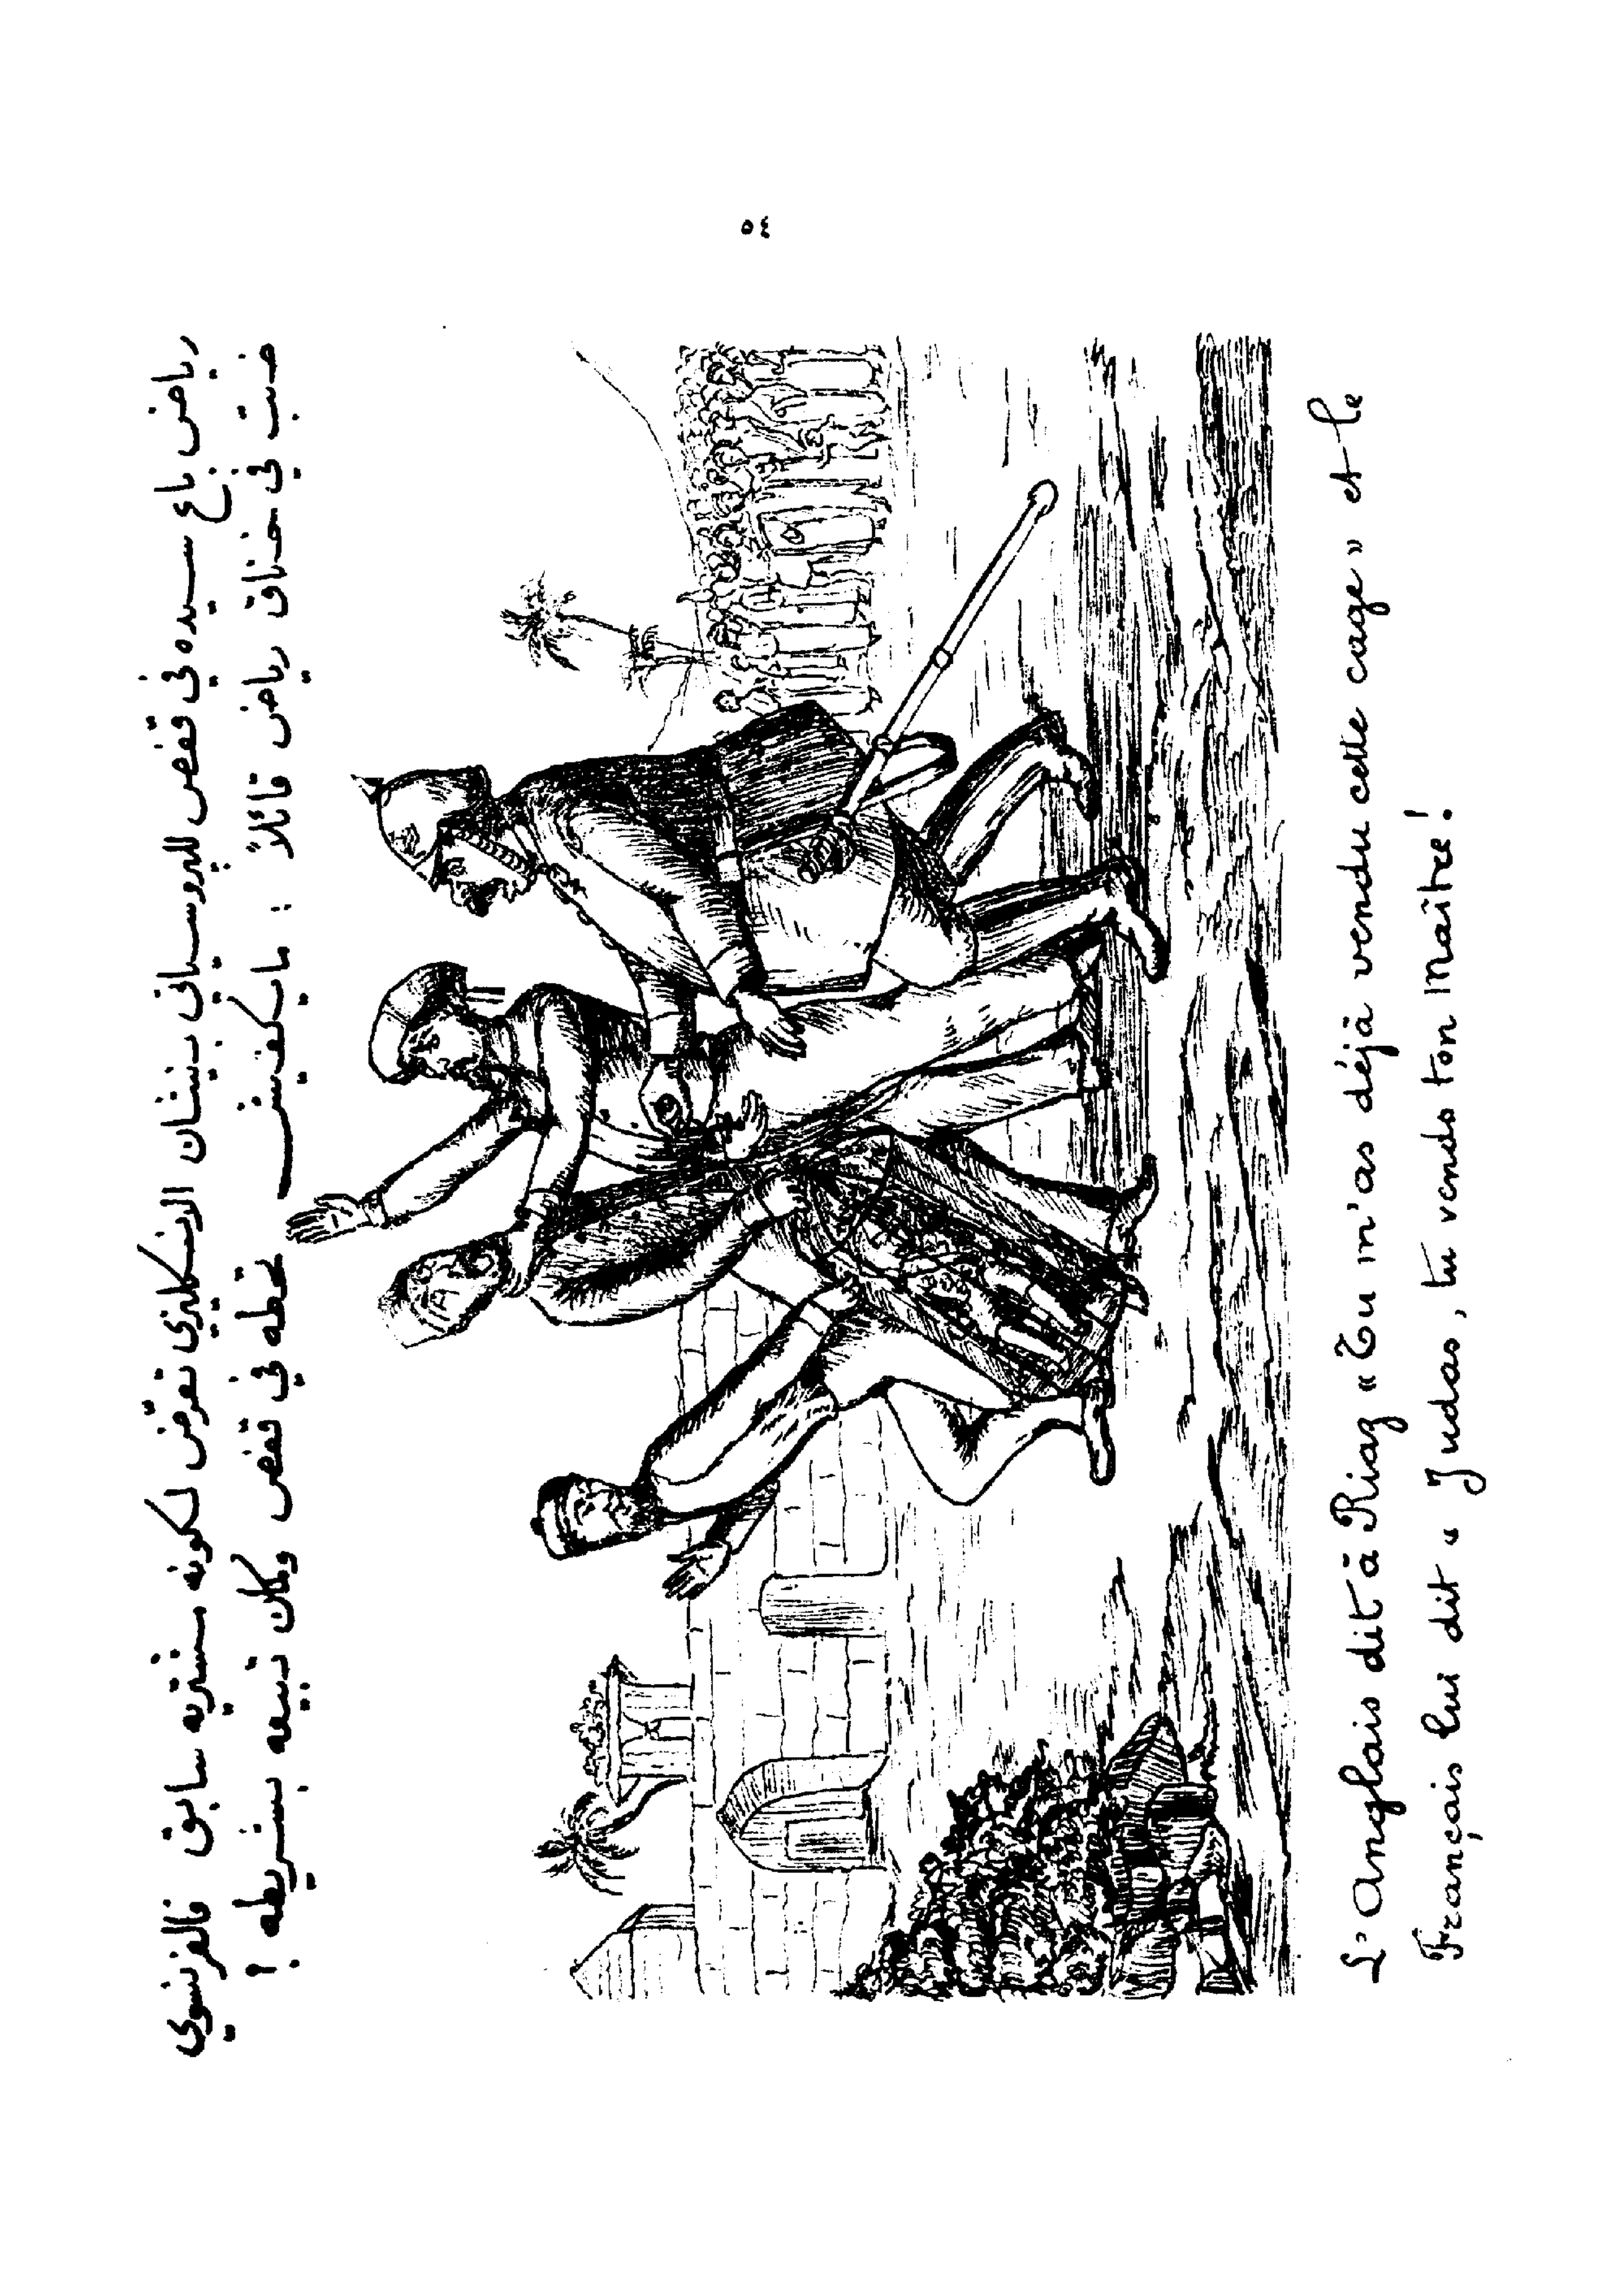 رياض باع سيده في قفص للبروسياني بنيشان الانكليزي تعرّض لكونه مشتريه سابق فالفرنسوي
ضبت في خناق رياض قائلاً : ما يكفيش تحطه في قفص وكان تبيعه بشريطه !
L'Anglais dit à Riaz « Tu m'as déjà vendu cette cage » et le
Français lui dit « Judas, tu vends ton maître !
٥٤